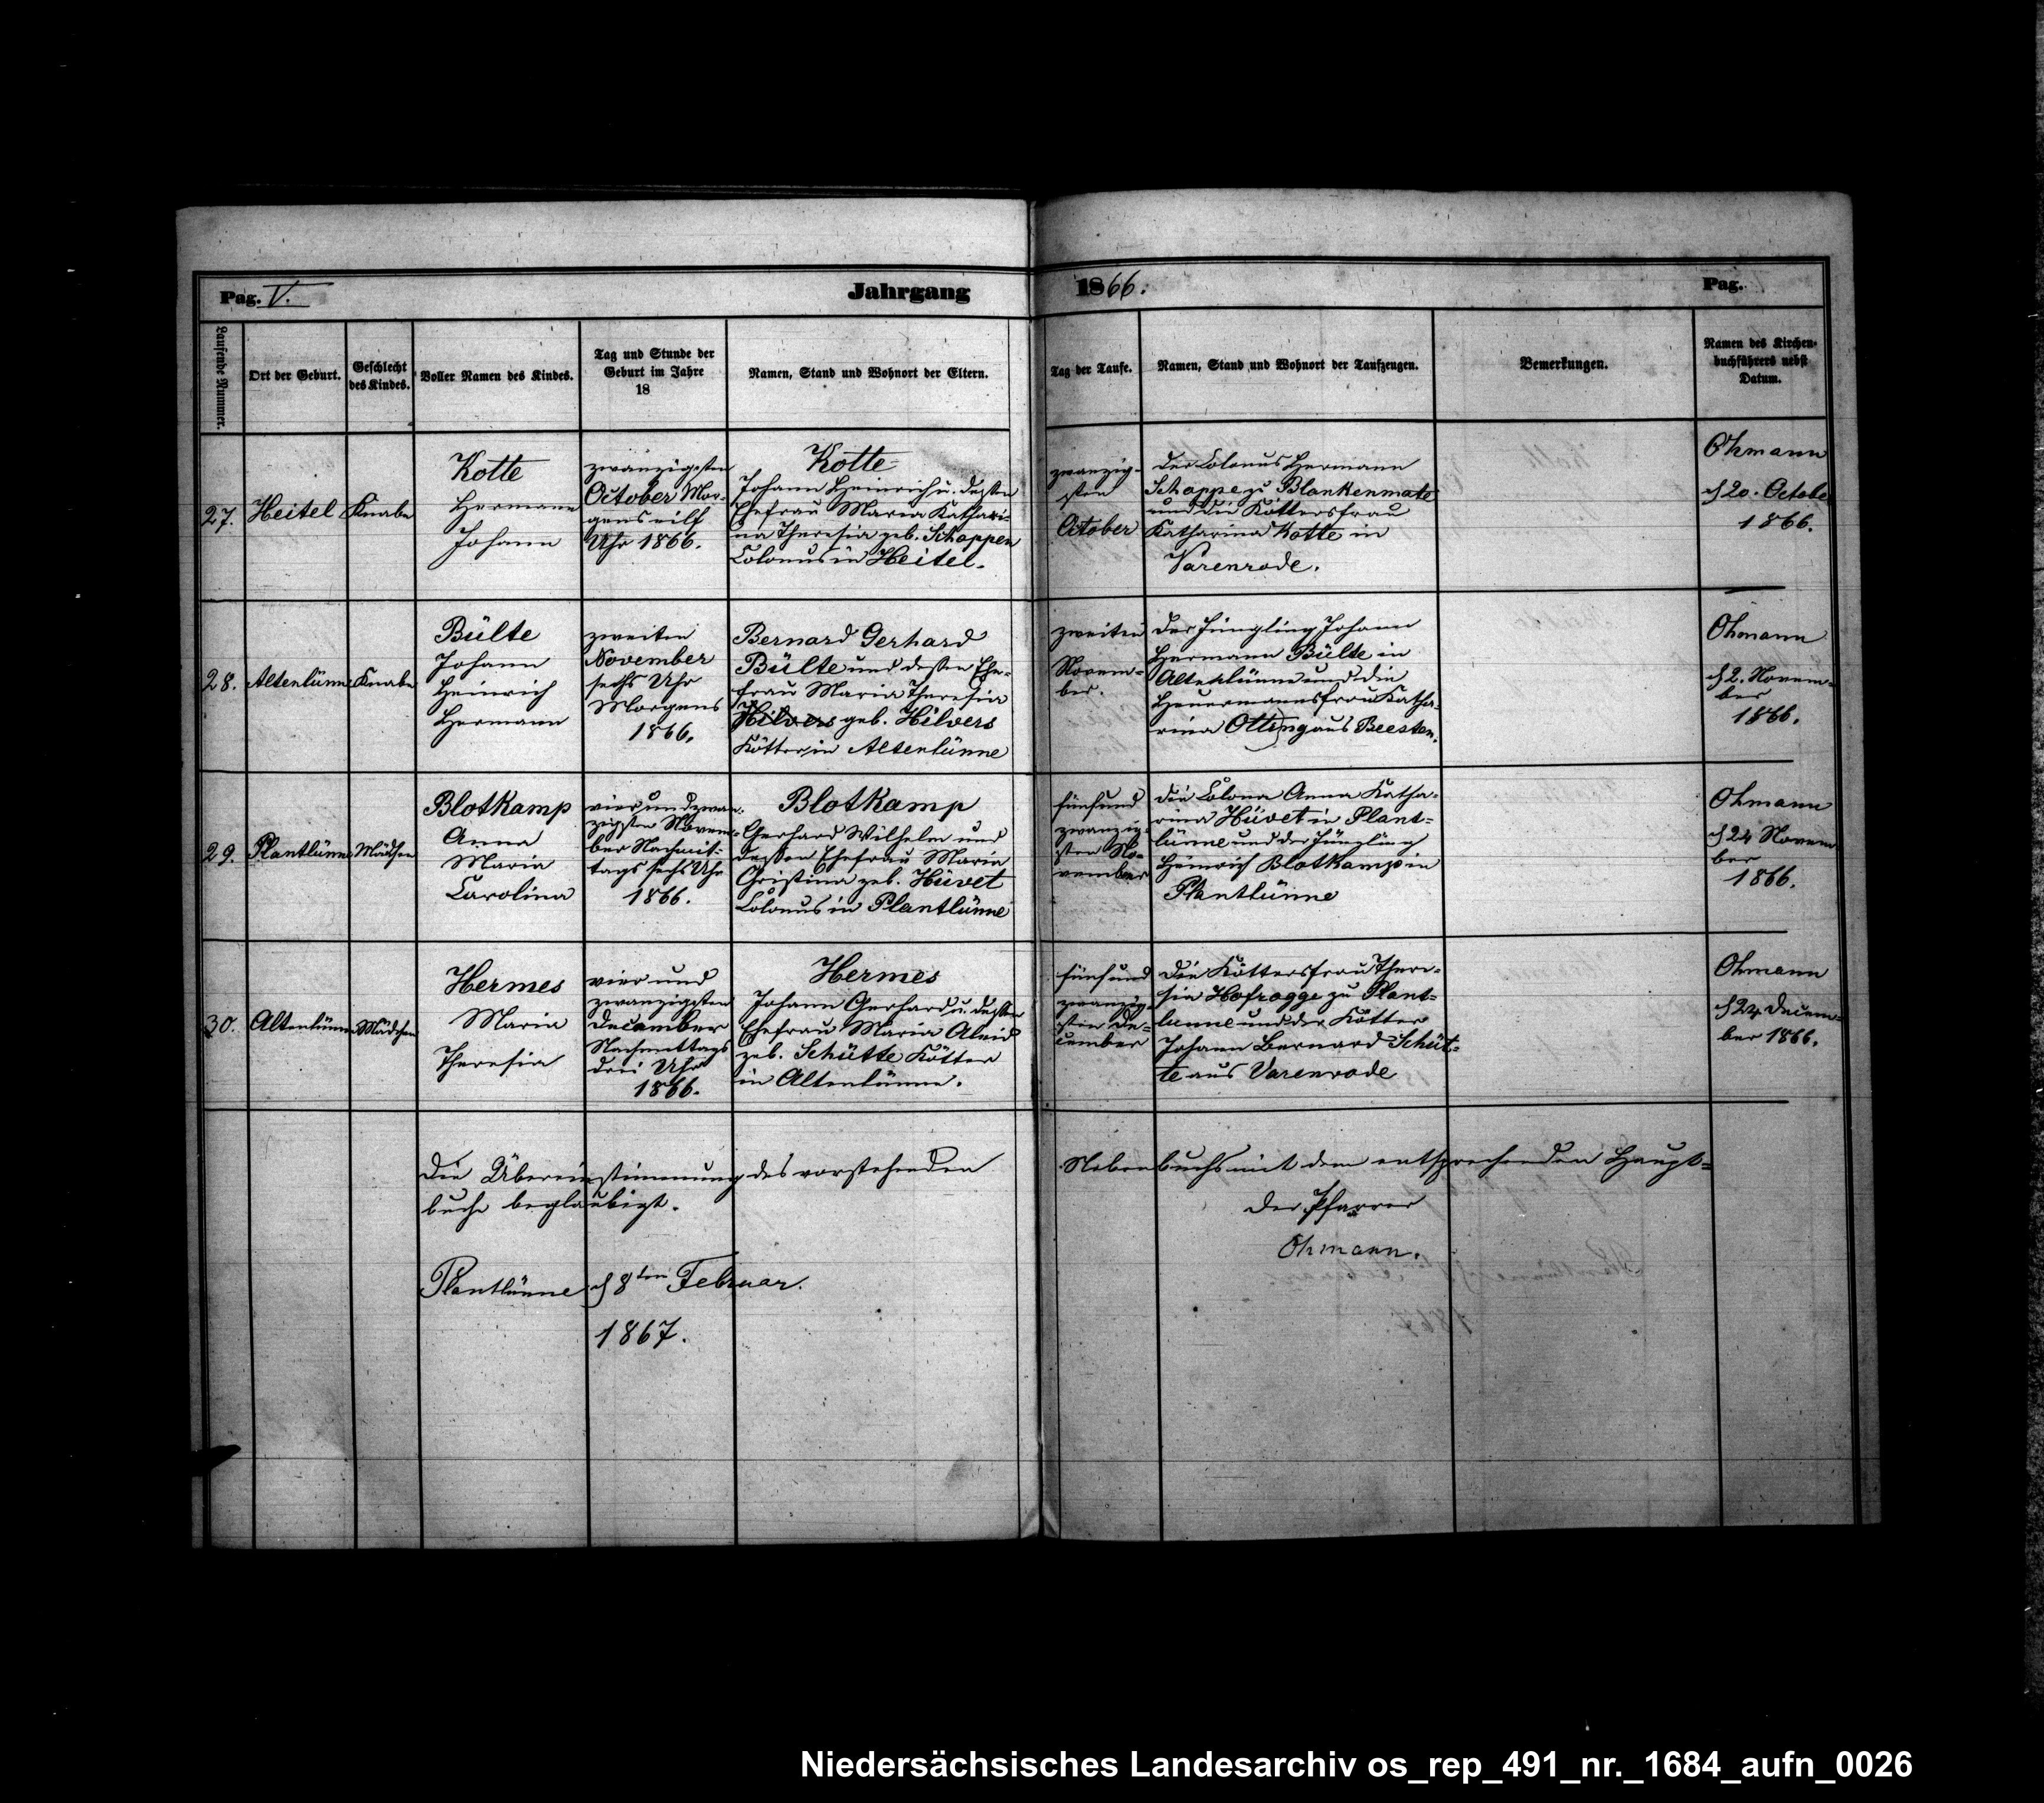 Pag. V.
Jahrgang 1866.
Pag.
Laufende Nummer.
Ort der Geburt.
Geschlecht
des Kindes.
Voller Namen des Kindes.
Tag und Stunde der
Geburt im Jahre
18
Namen, Stand und Wohnort der Eltern.
Tag der Taufe.
Namen, Stand und Wohnort der Taufzeugen.
Bemerkungen.
Namen des Kirchen-
buchführers nebst
Datum.
27.
Heitel
Knabe
Kotte
Hermann
Johann
zwanzigsten
October Mor-
gens eilf
Uhr 1866.
Kotte
Johann Heinrich u. dessen
Ehefrau Maria Kathari-
na Theresia geb. Schoppen
Colonus in Heitel.
zwanzig-
sten
October
der Colonus Hermann
Schoppe zu Blankenmate
und die Köttersfrau
Katharina Kotte in
Varenrode.
Ohmann
d 20. October
1866.
28.
Altenlünne
Knabe
Bülte
Johann
Heinrich
Hermann
zweiten
November
sechs Uhr
Morgens
1866.
Bernard Gerhard
Bülte und dessen Ehe-
frau Maria Theresia
Hilvers geb. Hilvers
Kötter in Altenlünne
zweiten
Novem-
ber.
der Jüngling Johann
Hermann Bülte in
Altenlünne und die
Heuermannsfrau Katha-
rina Otting aus Beesten.
Ohmann
d 2. Novem-
ber
1866.
29.
Plantlünne
Mädchen
Blotkamp
Anna
Maria
Carolina
vier und zwan-
zigsten Novem-
ber Nachmit-
tags sechs Uhr
1866.
Blotkamp
Gerhard Wilhelm und
dessen Ehefrau Maria
Christina geb. Hüvet
Colonus in Plantlünne
fünfund
zwanzig-
sten No-
vember
die Colona Anna Katha-
rina Hüvet in Plant-
lünne und der Jüngling
Heinrich Blotkamp in
Plantlünne
Ohmann
d 24 Novem
ber
1866.
30.
Altenlünne
Mädchen
Hermes
Maria
Theresia
vier und
zwanzigsten
December
Nachmittags
drei Uhr
1866.
Hermes
Johann Gerhard u. dessen
Ehefrau Maria Aleid
geb. Schütte Kötter
in Altenlünne.
fünfund
zwanzig-
sten De-
cember
die Köttersfrau There-
sia Hofrogge zu Plant-
lünne und der Kötter
Johann Bernard Schüt-
te aus Varenrode
Ohmann
d 24. Decem-
ber 1866.
Die Übereinstimmung des vorstehenden Nebenbuchs mit dem entsprechenden Haupt-
buche beglaubigt.
Der Pfarrer
Ohmann.
Plantlünne d 8ten Februar.
1867.
Niedersächsisches Landesarchiv os_rep_491_nr._1684_aufn_0026